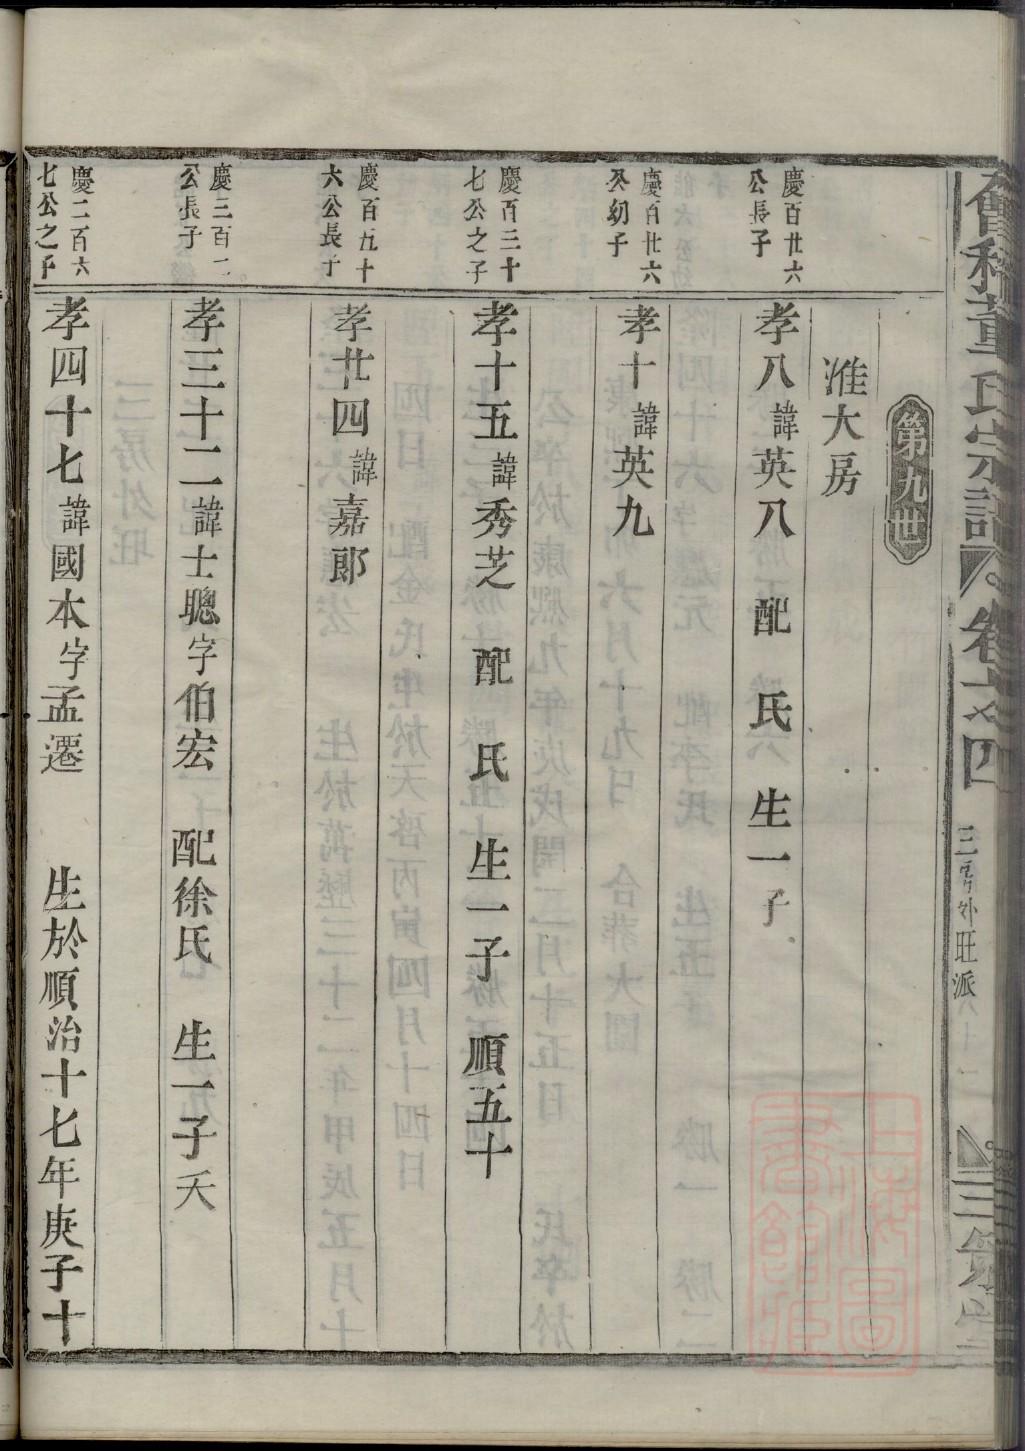 會稽董氏宗譜
卷之四
三房外旺派
第九世
淮大房
慶百廿六
公長子
孝八諱英八 配 氏 生一子
慶百廿六
公幼子
孝十諱英九
慶百三十
七公之子
孝十五諱秀芝 配 氏 生一子 順五十
慶百九十
六公長子
孝廿四諱嘉郎
慶三百二
公長子
孝三十二諱士聰字伯宏 配徐氏 生一子夭
慶二百六
七公之子
孝四十七諱國本字孟遷 生於順治十七年庚子十